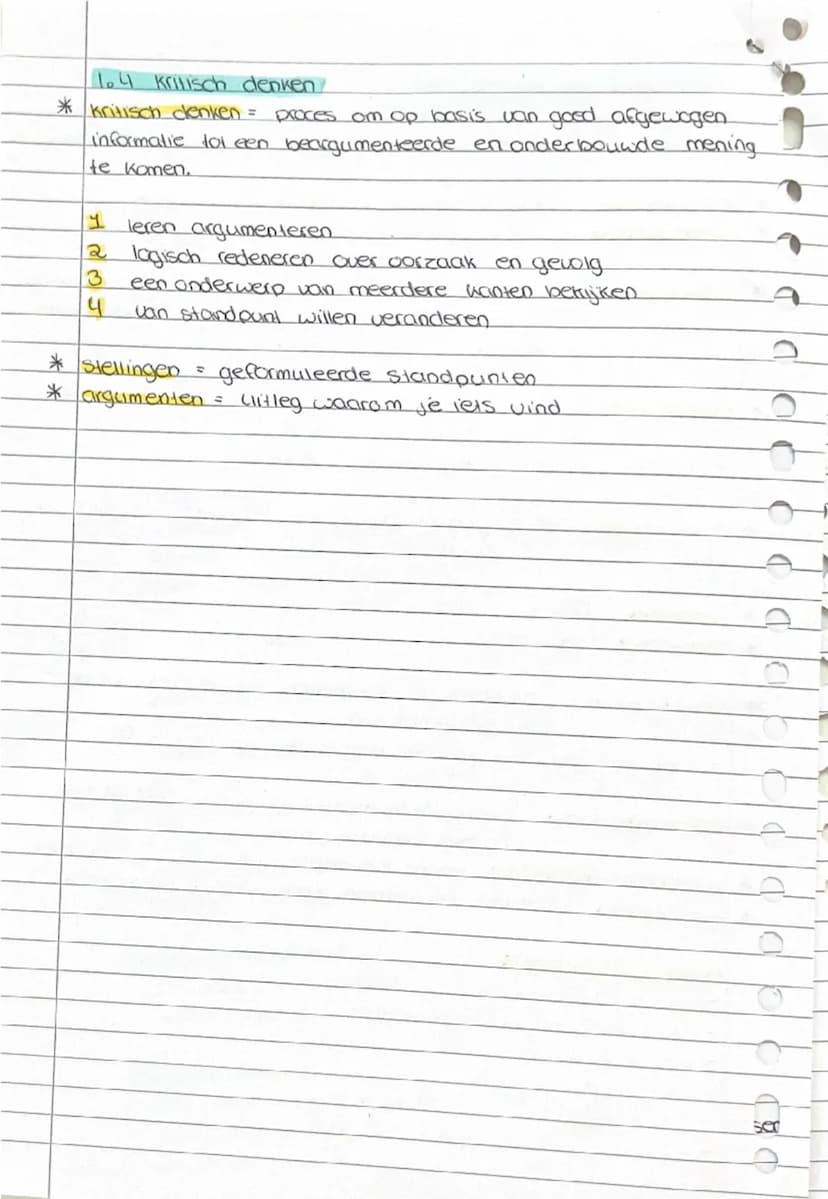 1.4 kritisch denken
* kritisch denken = proces om op basis van goed afgewogen
informatie tot een beargumenteerde en onderbouwde mening
te komen.
1 leren argumenteren
2 logisch redeneren over oorzaak en gevolg
3 een onderwerp van meerdere kanten bekijken
4 van standpunt willen veranderen
* stellingen = geformuleerde standpunten
* argumenten = uitleg waarom je iets vind
ser